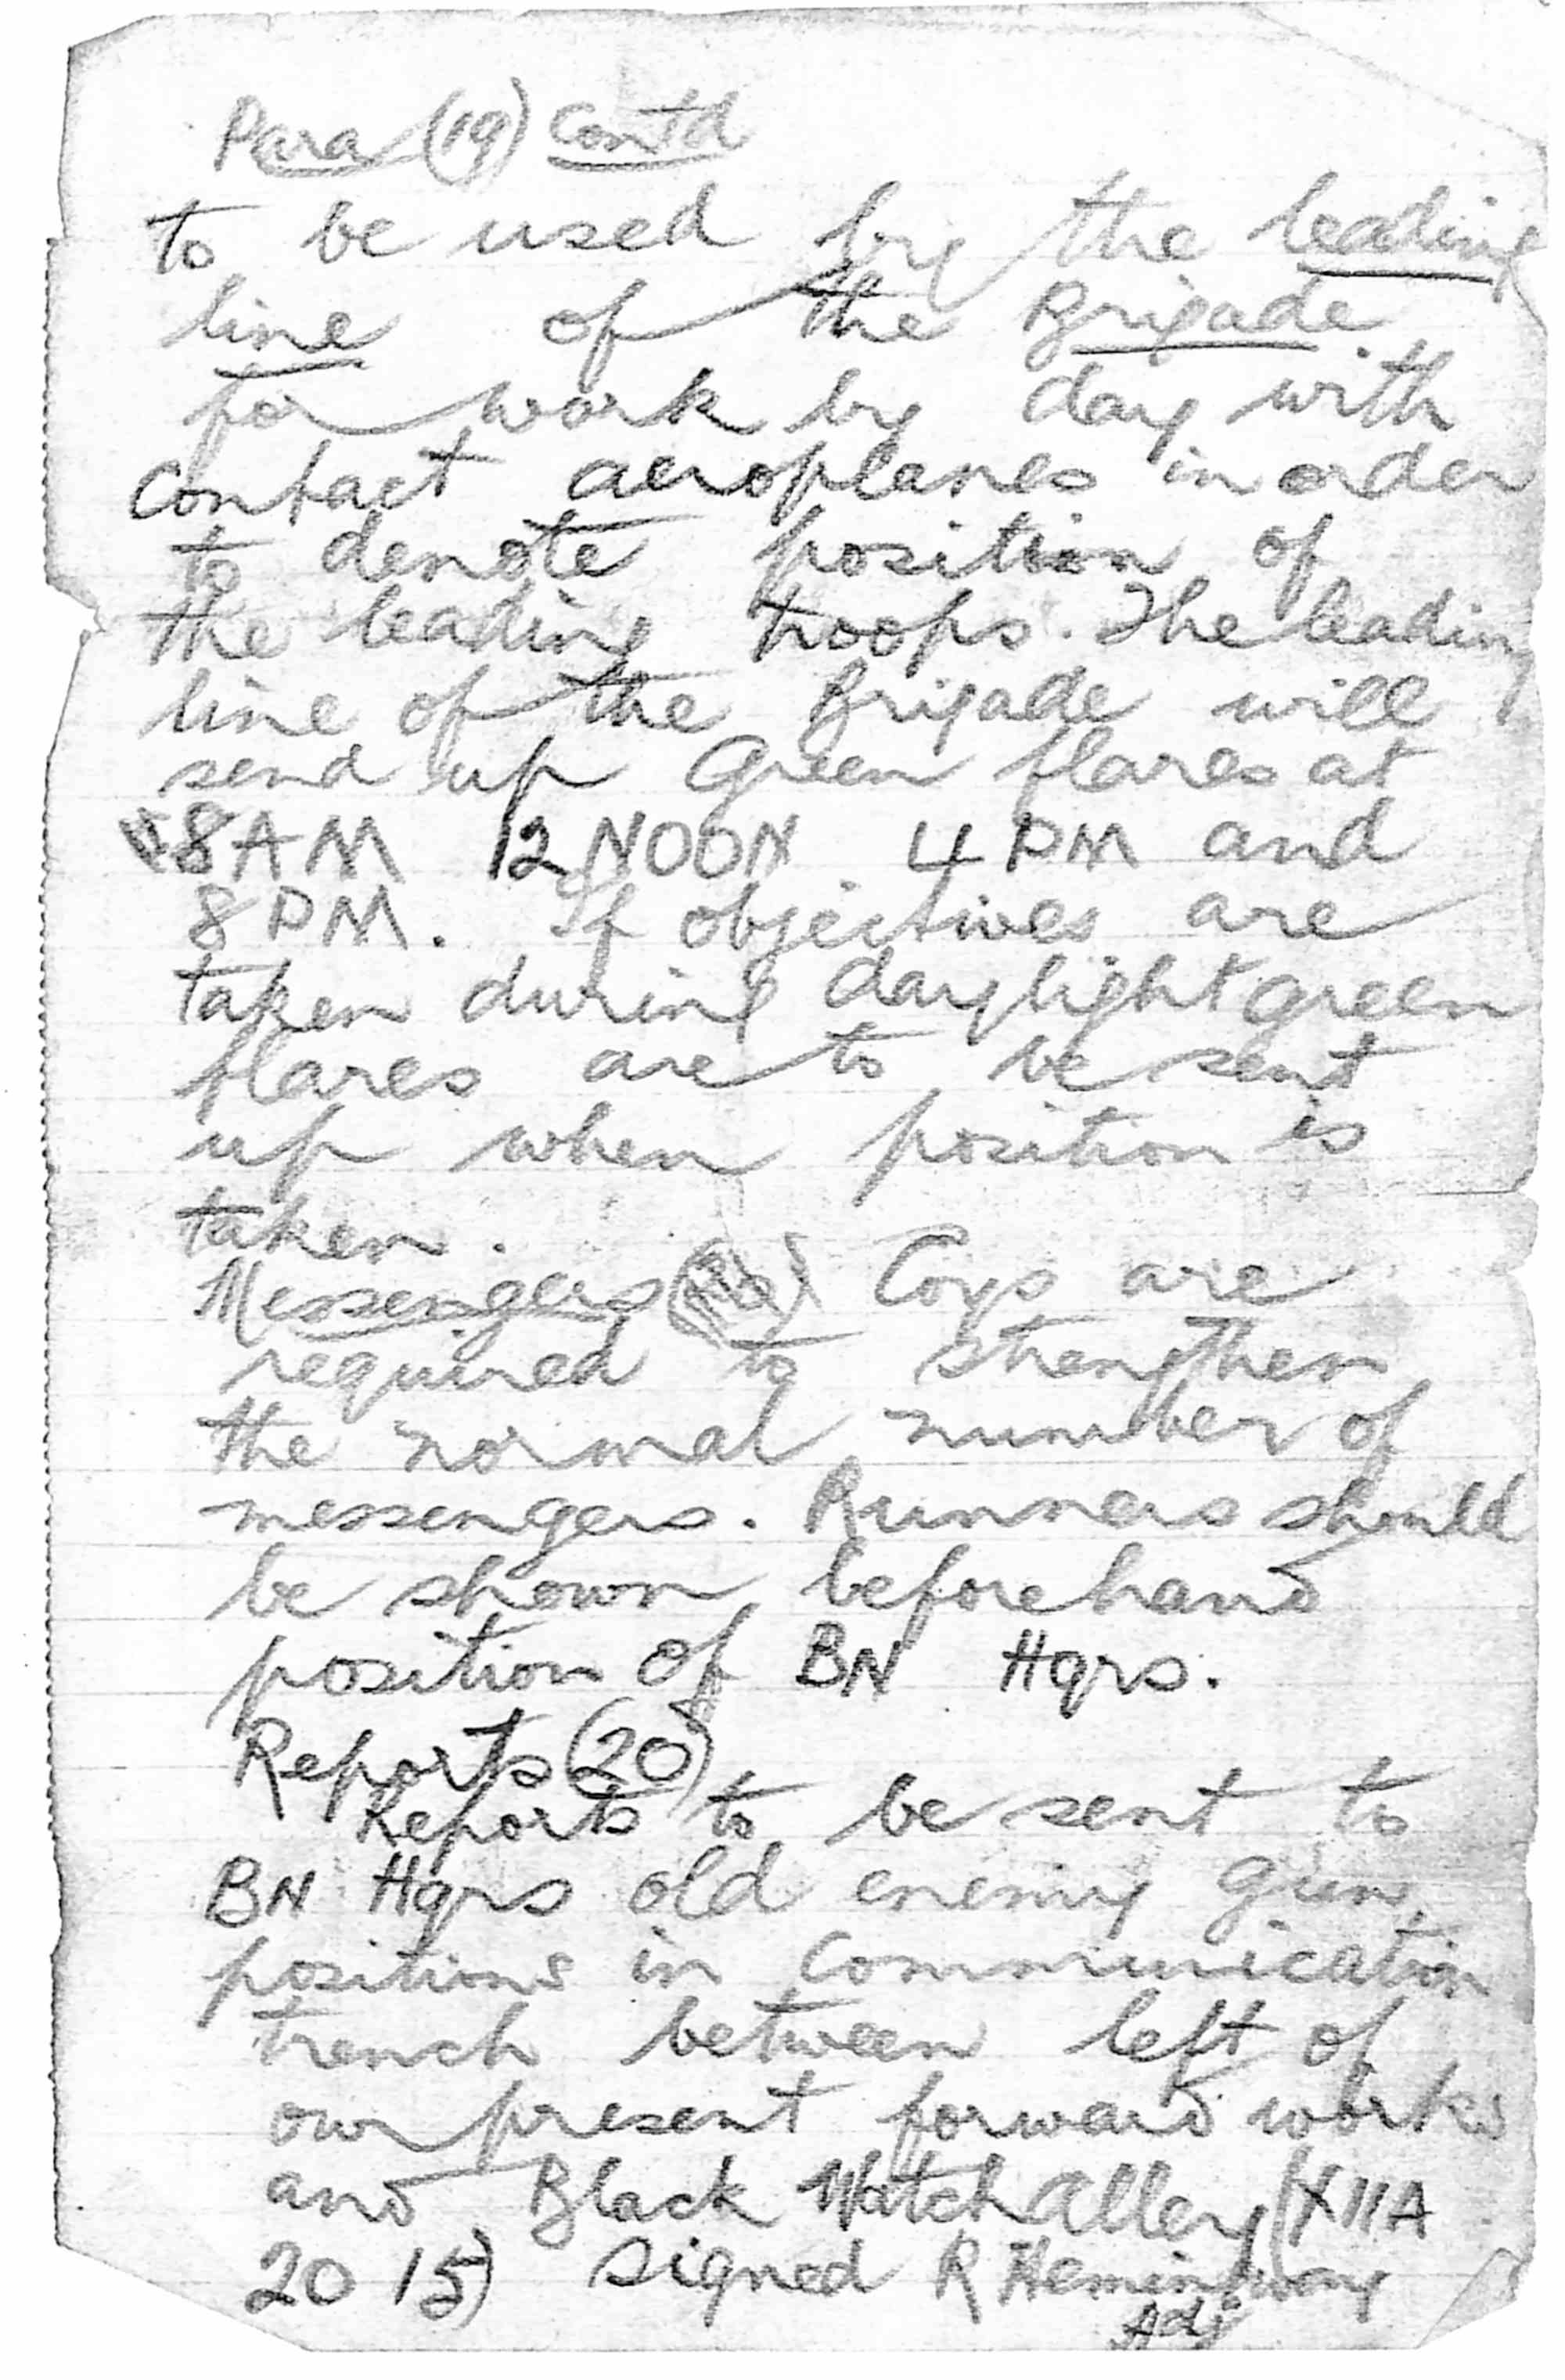 Para (19) Contd
to be used by the leading
line of the Brigade
for work by day with
contact aeroplanes in order
to denote position of
the leading troops. The leading
line of the Brigade will
send up Green flares at
8AM 12 NOON 4 PM and
8 PM. If objectives are
taken during daylight green
flares are to be sent
up when position is
taken.
Messengers Coys are
required to strengthen
the normal number of
messengers. Runners should
be shown beforehand
position of BN Hqrs.
Reports (20)
Reports to be sent to
BN Hqrs old enemy gun
positions in communication
trench between left of
our present forward works
and Black Watch alley (X11A
20 15) Signed R Hemingway
Adj